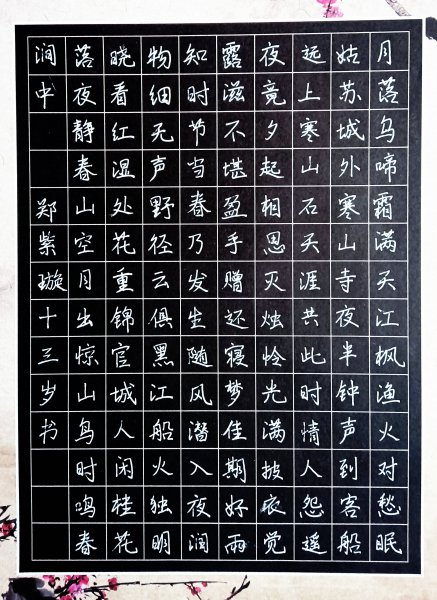 月落乌啼霜满天江枫渔火对愁眠
姑苏城外寒山寺夜半钟声到客船
远上寒山石天涯共此时情人怨遥
夜竟夕起相思灭烛怜光满披衣觉
露滋不堪盈手赠还寝梦佳期好雨
知时节当春乃发生随风潜入夜润
物细无声野径云俱黑江船火独明
晓看红湿处花重锦官城人闲桂花
落夜静春山空月出惊山鸟时鸣春
涧中 郑紫璇十三岁书